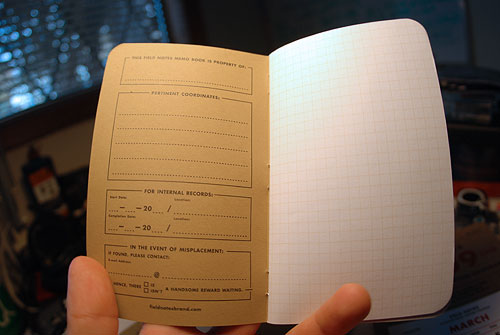 THIS FIELD NOTES MEMO BOOK IS PROPERTY OF:
PERTINENT COORDINATES:
FOR INTERNAL RECORDS:
Start Date: Location:
— — 20 /
Completion Date: Location:
— — 20 /
IN THE EVENT OF MISPLACEMENT:
IF FOUND, PLEASE CONTACT:
E-mail Address:
@
HENCE, THERE IS
ISN'T A HANDSOME REWARD WAITING.
fieldnotesbrand.com
MARCH